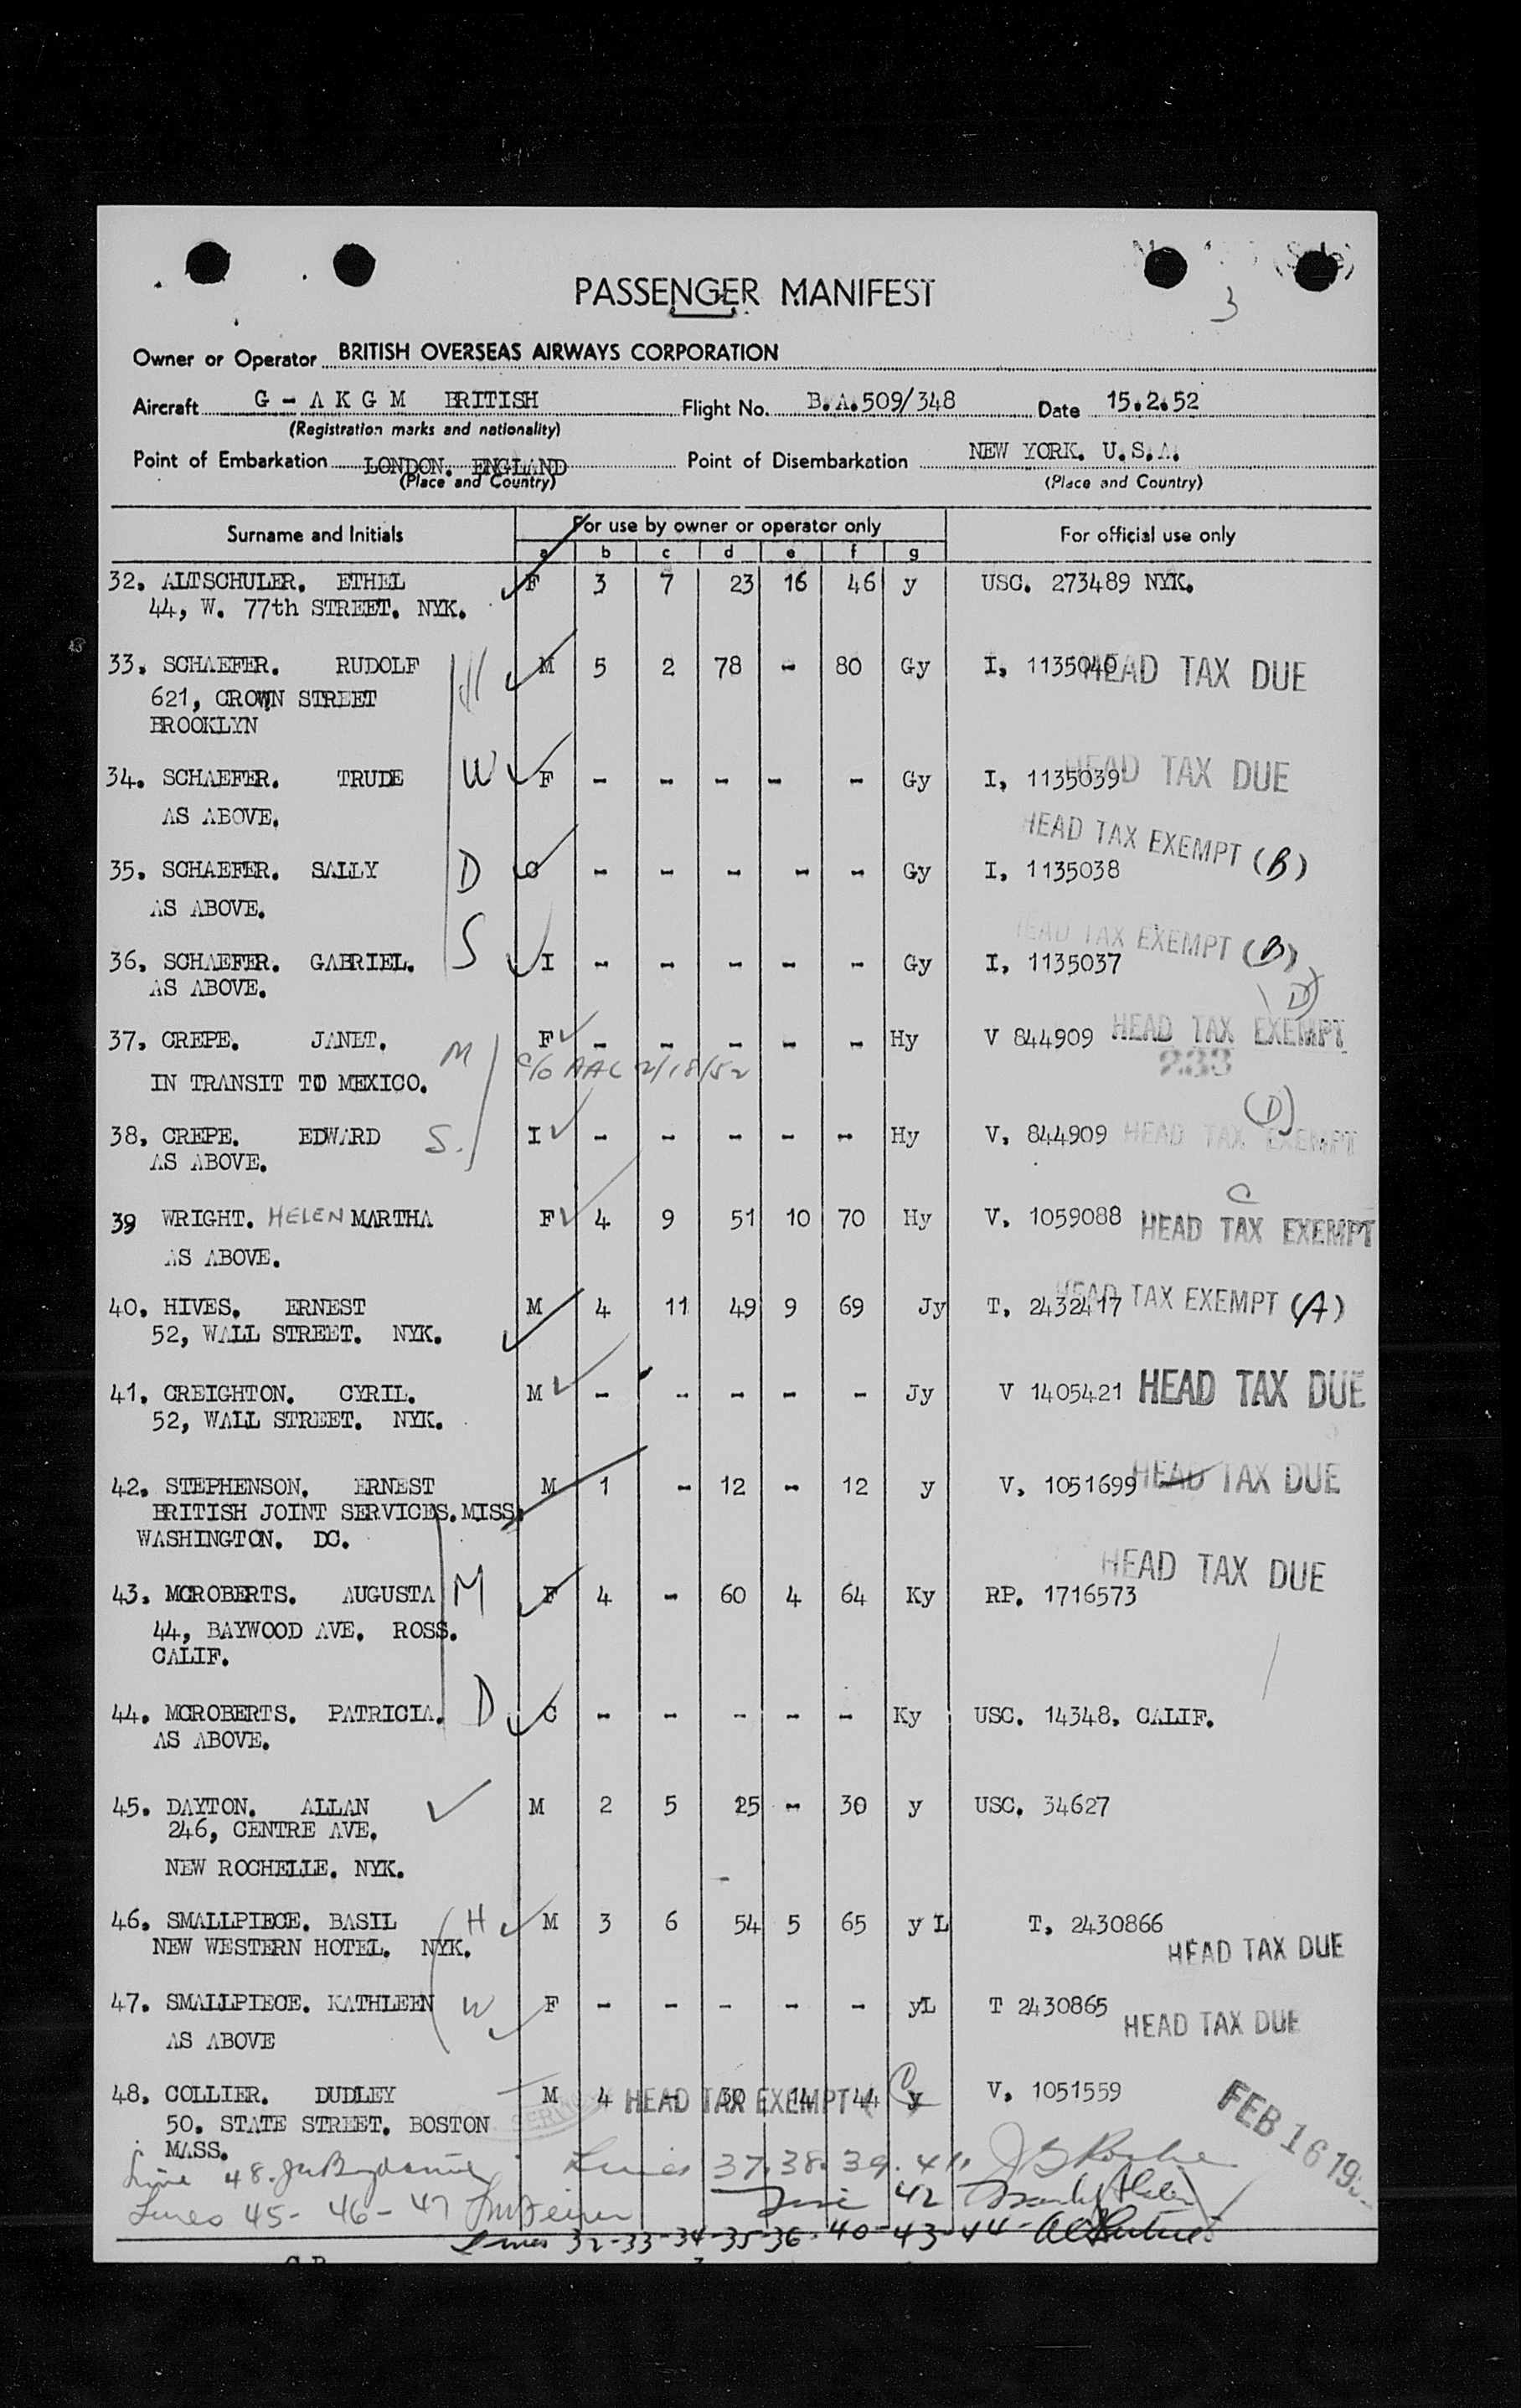 3
PASSENGER MANIFEST
Owner or Operator BRITISH OVERSEAS AIRWAYS CORPORATION
Aircraft G - A K G M BRITISH Flight No. B.A.509/348 Date 15.2.52
(Registration marks and nationality)
Point of Embarkation LONDON. ENGLAND Point of Disembarkation NEW YORK. U.S.A.
(Place and Country) (Place and Country)
Surname and Initials For use by owner or operator only For official use only
a b c d e f g
32. ALTSCHULER. ETHEL F 3 7 23 16 46 y USC. 273489 NYK.
44, W. 77th STREET. NYK.
33. SCHAEFER. RUDOLF H M 5 2 78 - 80 Gy I, 1135040 HEAD TAX DUE
621, CROWN STREET
BROOKLYN
34. SCHAEFER. TRUDE W F - - - - - Gy I, 1135039 HEAD TAX DUE
AS ABOVE.
HEAD TAX EXEMPT (B)
35. SCHAEFER. SALLY D C - - - - - Gy I, 1135038
AS ABOVE.
HEAD TAX EXEMPT (B)
36. SCHAEFER. GABRIEL. S I - - - - - Gy I, 1135037
AS ABOVE.
(D)
37. CREPE. JANET. M F - - - - - Hy V 844909 HEAD TAX EXEMPT
c/o AAC 2/18/52 233
IN TRANSIT TO MEXICO.
(D)
38. CREPE. EDWARD S. I - - - - - Hy V. 844909 HEAD TAX EXEMPT
AS ABOVE.
C
39 WRIGHT. HELEN MARTHA F 4 9 51 10 70 Hy V. 1059088 HEAD TAX EXEMPT
AS ABOVE.
40. HIVES. ERNEST M 4 11 49 9 69 Jy T. 2432417 HEAD TAX EXEMPT (A)
52, WALL STREET. NYK.
41. CREIGHTON. CYRIL. M - - - - - Jy V 1405421 HEAD TAX DUE
52, WALL STREET. NYK.
42. STEPHENSON. ERNEST M 1 - 12 - 12 y V. 1051699 HEAD TAX DUE
BRITISH JOINT SERVICES. MISS.
WASHINGTON. DC.
HEAD TAX DUE
43. MCROBERTS. AUGUSTA M F 4 - 60 4 64 Ky RP. 1716573
44, BAYWOOD AVE. ROSS.
CALIF.
44. MCROBERTS. PATRICIA. D C - - - - - Ky USC. 14348, CALIF.
AS ABOVE.
45. DAYTON. ALLAN M 2 5 25 - 30 y USC. 34627
246, CENTRE AVE.
NEW ROCHELLE. NYK.
46. SMALLPIECE. BASIL H M 3 6 54 5 65 y L T. 2430866
NEW WESTERN HOTEL. NYK. HEAD TAX DUE
47. SMALLPIECE. KATHLEEN W F - - - - - yL T 2430865
HEAD TAX DUE
AS ABOVE
48. COLLIER. DUDLEY M 4 - 30 14 44 y V. 1051559
HEAD TAX EXEMPT (C
50. STATE STREET. BOSTON
MASS.
FEB 16 19
Line 48.
Lines 37.38.39.41.
Lines 45-46-47
Line 42
Lines 32-33-34-35-36-40-43-44-